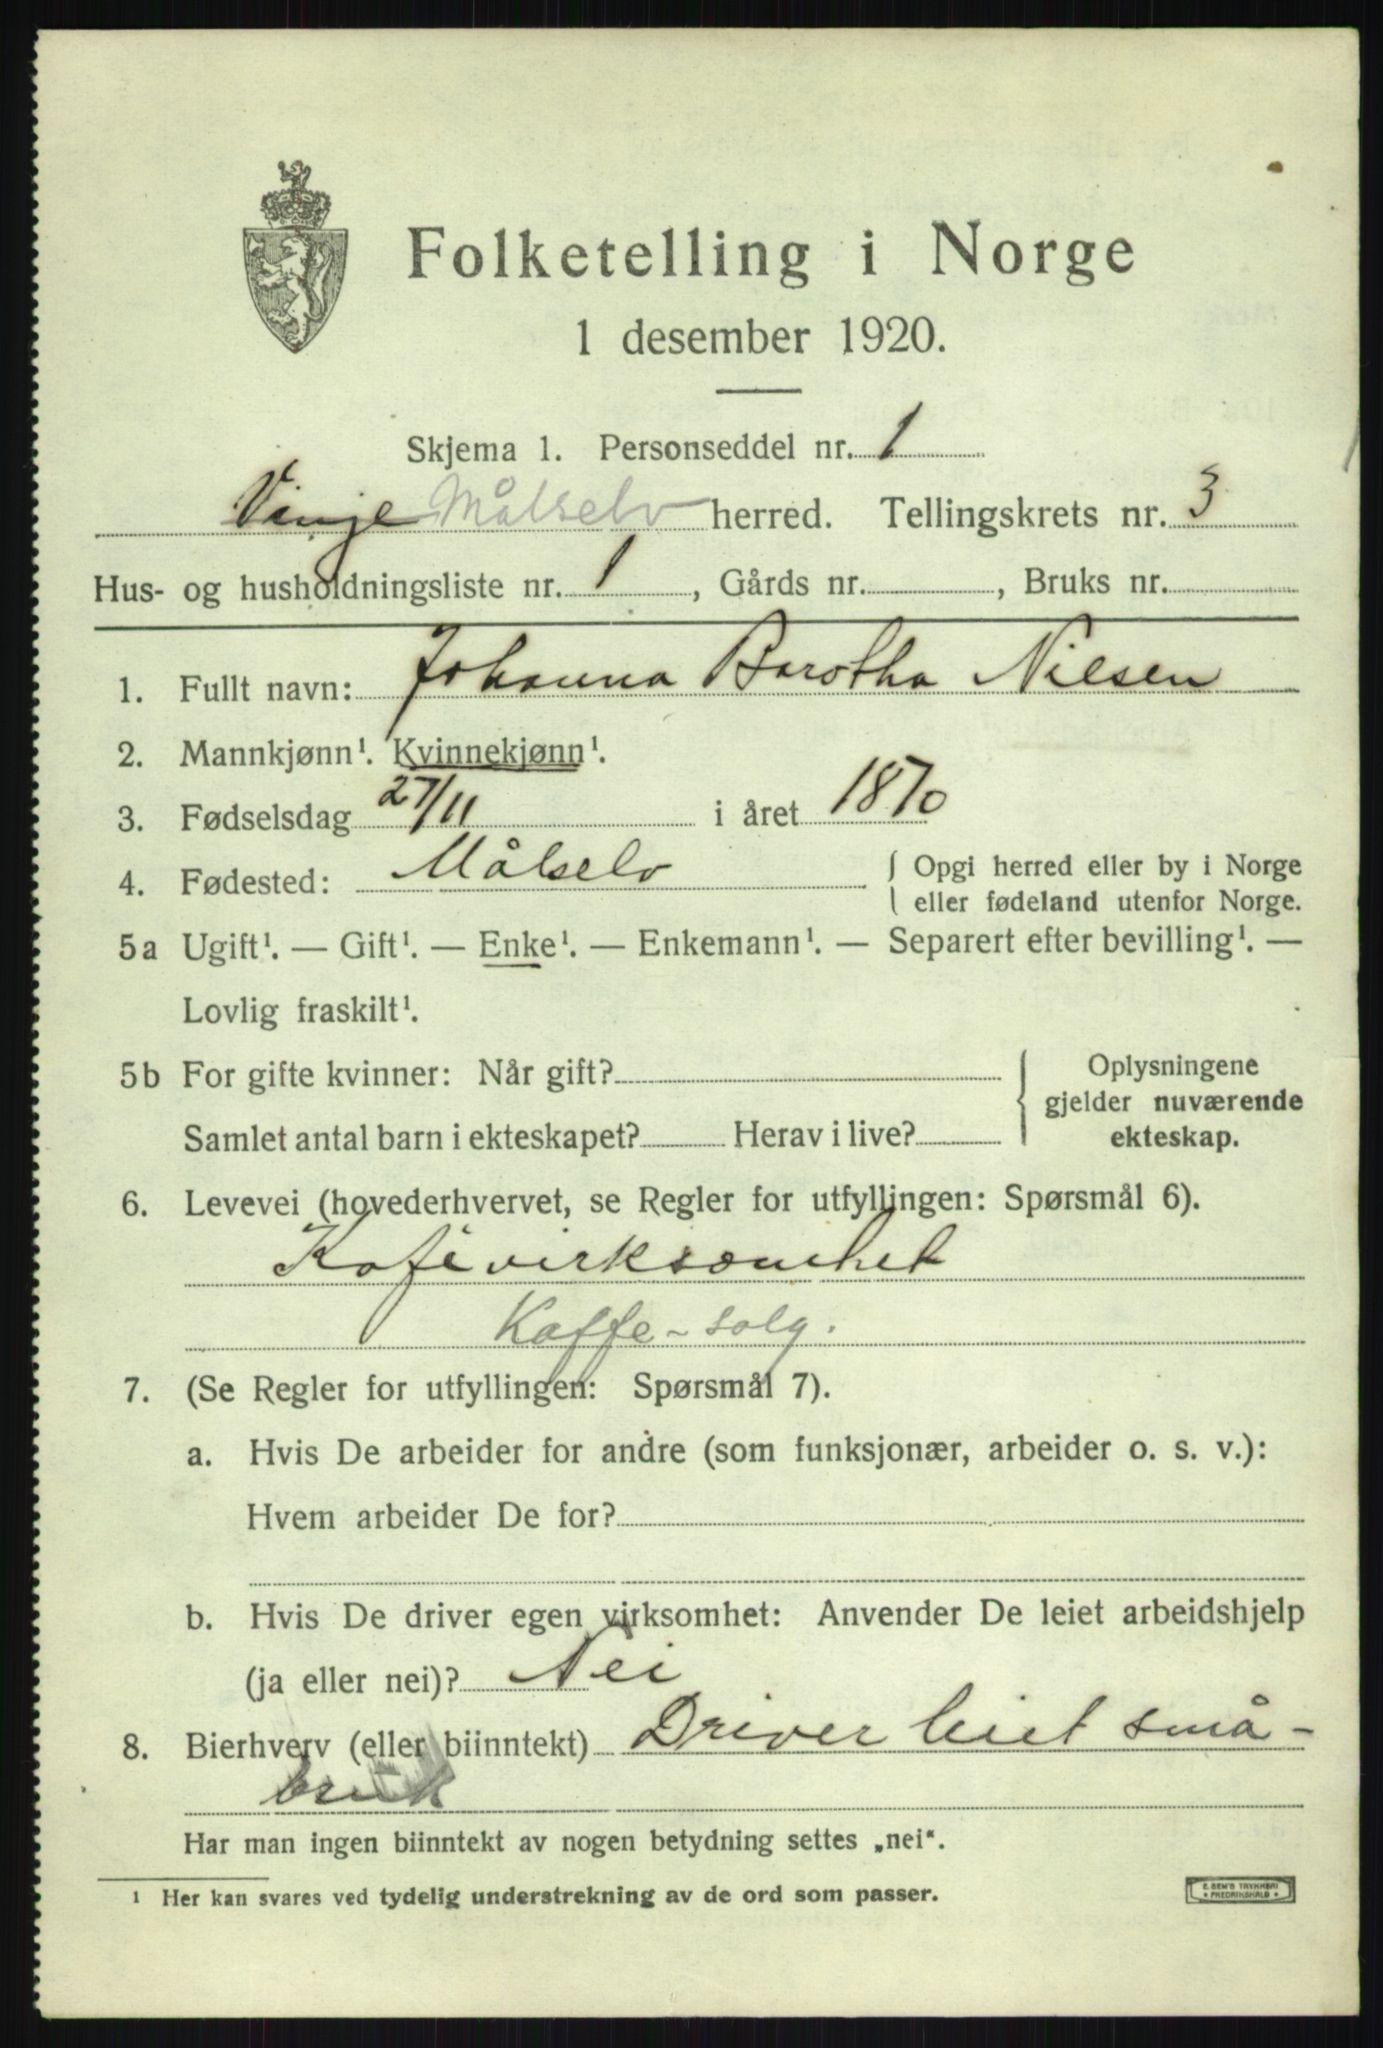 Folketelling i Norge
1 desember 1920.
Skjema 1. Personseddel nr. 1
Vinje Målselv herred. Tellingskrets nr. 3
Hus- og husholdningsliste nr. 1, Gårds nr. , Bruks nr.
1. Fullt navn: Johanna Barotha Nilsen
2. Mannkjønn¹. Kvinnekjønn¹.
3. Fødselsdag 27/11 i året 1870
4. Fødested: Målselv { Opgi herred eller by i Norge
eller fødeland utenfor Norge.
5a Ugift¹. — Gift¹. — Enke¹. — Enkemann¹. — Separert efter bevilling¹. —
Lovlig fraskilt¹.
5b For gifte kvinner: Når gift? { Oplysningene
gjelder nuværende
Samlet antal barn i ekteskapet? Herav i live? ekteskap.
6. Levevei (hovederhvervet, se Regler for utfyllingen: Spørsmål 6).
Kafévirksomhet
Kaffe-salg.
7. (Se Regler for utfyllingen: Spørsmål 7).
a. Hvis De arbeider for andre (som funksjonær, arbeider o. s. v.):
Hvem arbeider De for?
b. Hvis De driver egen virksomhet: Anvender De leiet arbeidshjelp
(ja eller nei)? Nei
8. Bierhverv (eller biinntekt) Driver leiet små-
bruk
Har man ingen biinntekt av nogen betydning settes „nei“.
¹ Her kan svares ved tydelig understrekning av de ord som passer.
E. SEM'S TRYKKERI
FREDRIKSHALD